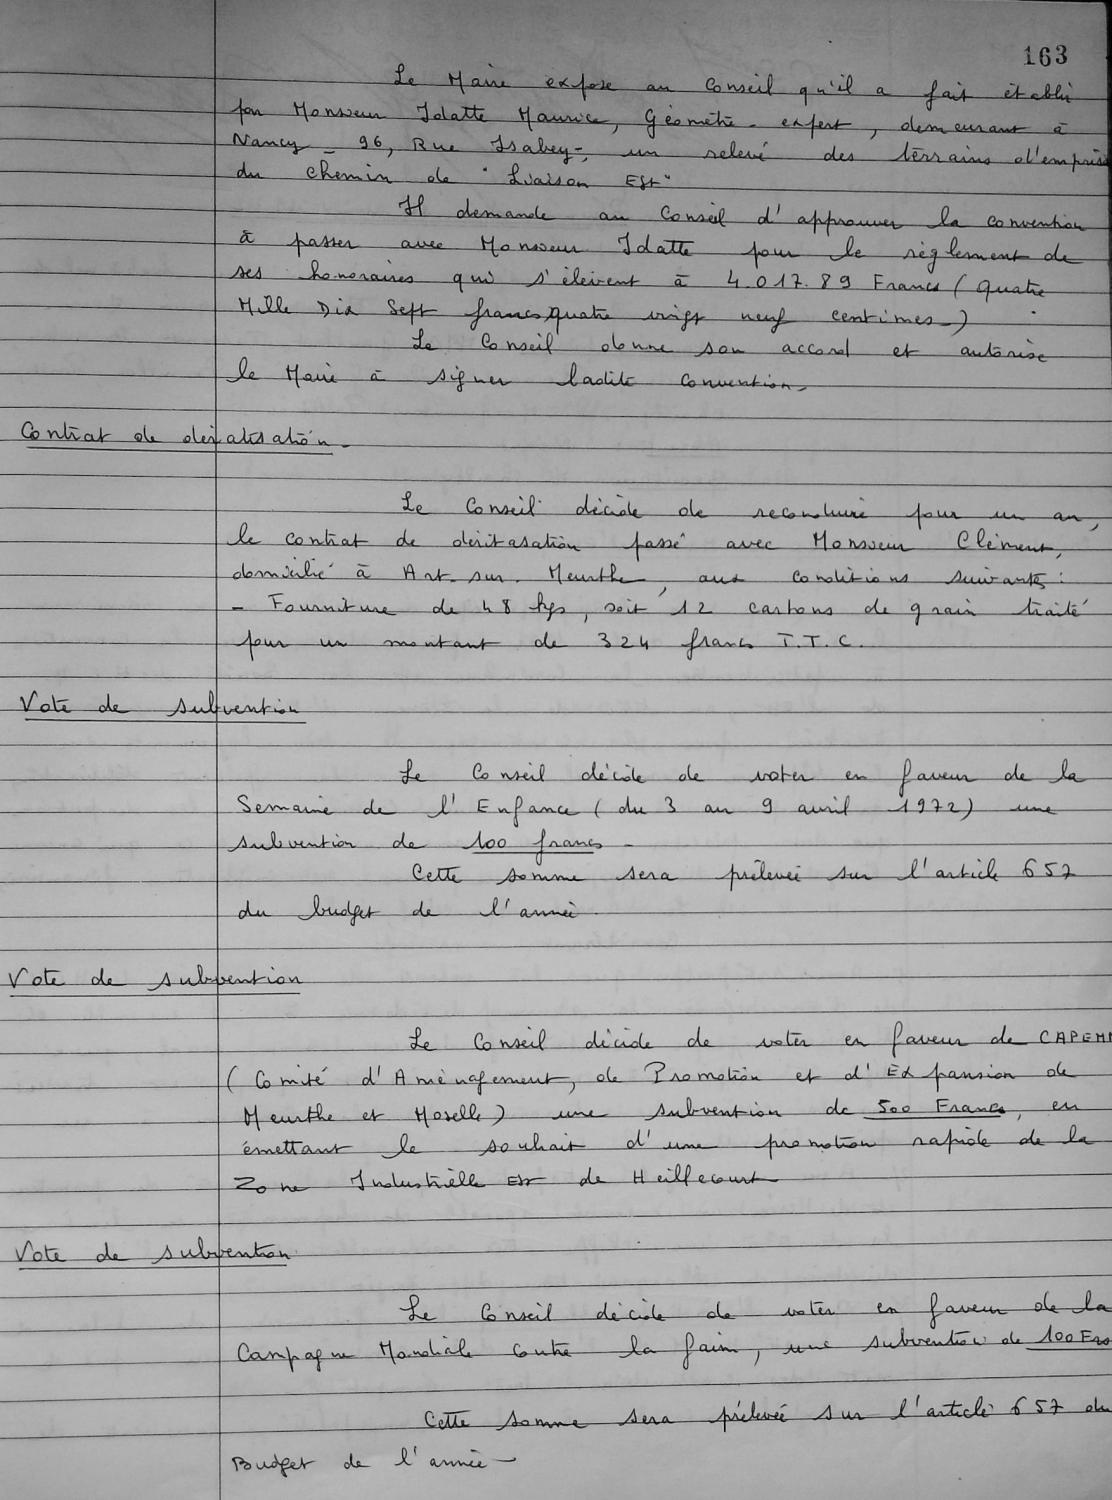 163
Le Maire expose au Conseil qu'il a fait établi
par Monsieur Idatte Maurice, Géomètre - expert, demeurant à
Nancy - 96, Rue Isabey -, un relevé des terrains d'emprise
du chemin de "Liaison Est"
Il demande au Conseil d'approuver la convention
à passer avec Monsieur Idatte pour le règlement de
ses honoraires qui s'élèvent à 4.017.89 Francs (quatre
Mille Dix Sept francs quatre vingt neuf centimes -)
Le Conseil donne son accord et autorise
le Maire à signer ladite convention -
Contrat de dératisation -
Le Conseil décide de reconduire pour un an,
le contrat de déritasation passé avec Monsieur Clément,
domicilié à Art-sur-Meurthe, aux conditions suivantes :
- Fourniture de 48 kgs, soit 12 cartons de grain traité
pour un montant de 324 francs T.T.C.
Vote de subvention
Le Conseil décide de voter en faveur de la
Semaine de l'Enfance (du 3 au 9 avril 1972) une
subvention de 100 francs -
Cette somme sera prélevée sur l'article 657
du budget de l'année.
Vote de subvention
Le Conseil décide de voter en faveur de CAPEMM
(Comité d'Aménagement, de Promotion et d'Expansion de
Meurthe et Moselle) une subvention de 500 Francs, en
émettant le souhait d'une promotion rapide de la
Zone Industrielle Est de Heillecourt
Vote de subvention
Le Conseil décide de voter en faveur de la
Campagne Mondiale contre la faim, une subvention de 100 Frs
Cette somme sera prélevée sur l'article 657 du
Budget de l'année -